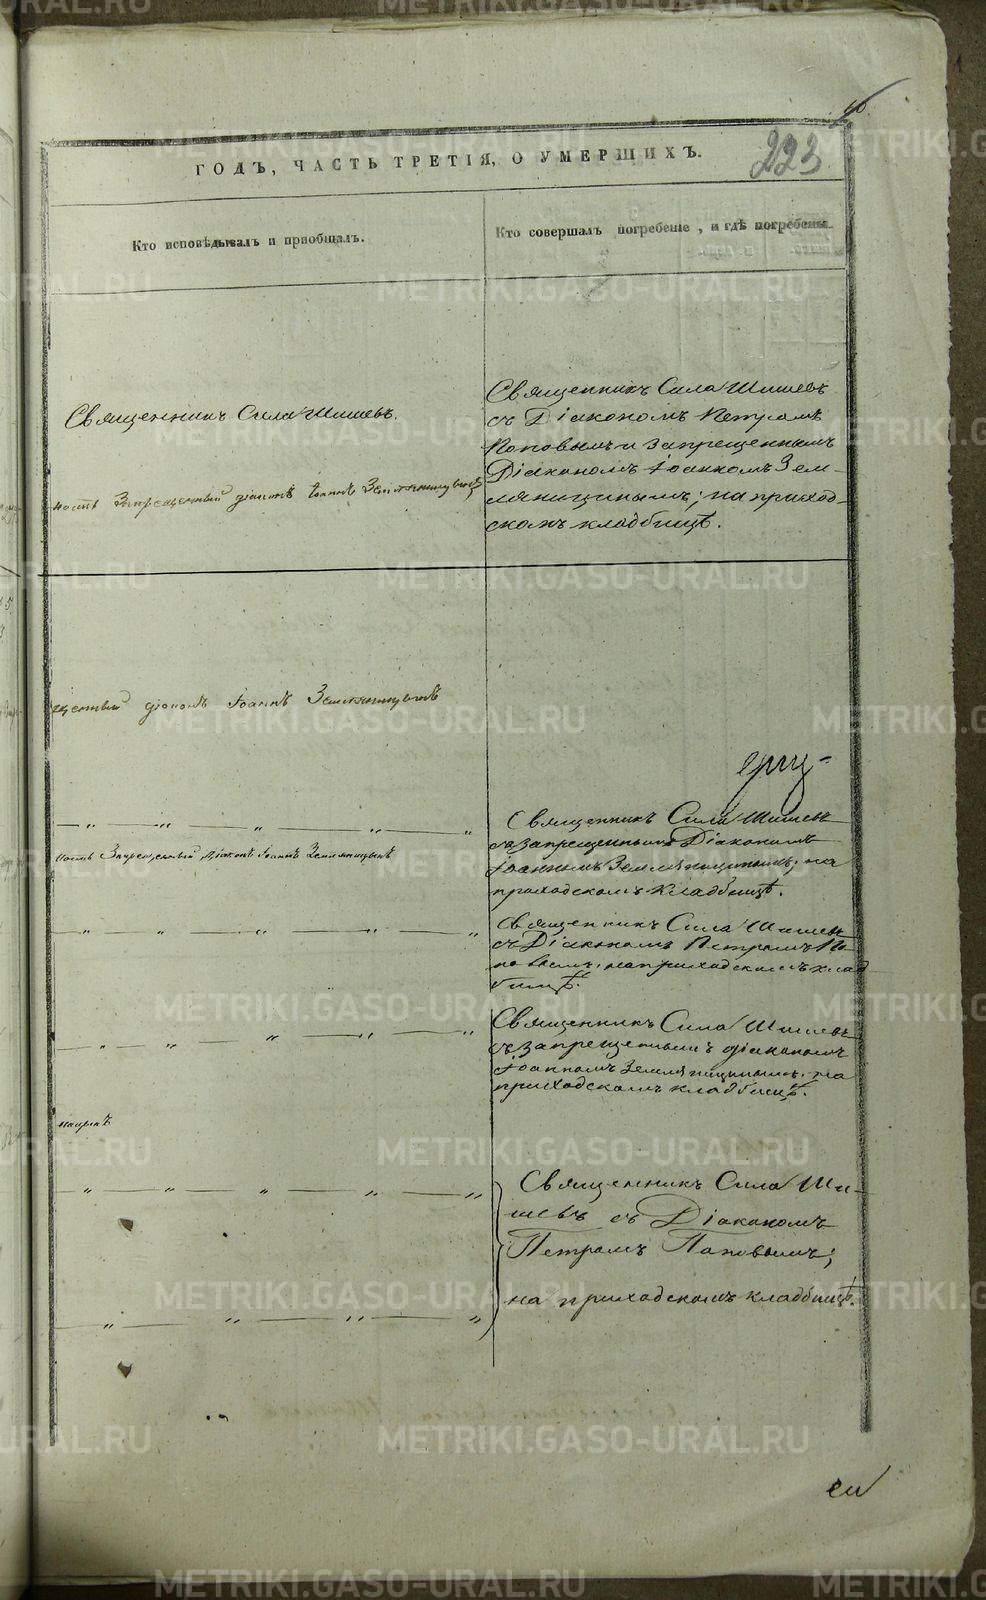 223
ГОДЪ, ЧАСТЬ ТРЕТІЯ, О УМЕРШИХЪ.
Кто исповѣдывалъ и пріобщалъ.
Кто совершалъ погребеніе, и гдѣ погребены.
Священникъ Сила Шишевъ.
ность Запрещенный діаконъ Іоаннъ Земляницынъ
Священникъ Сила Шишевъ
съ Діакономъ Петромъ
Поповымъ и запрещеннымъ
Діакономъ Іоанномъ Зем-
ляницинымъ; на приход-
скомъ кладбищѣ.
щенный діаконъ Іоаннъ Земляницынъ
Священникъ Сила Шишевъ
съ запрещеннымъ Діакономъ
Іоанномъ Земляницинымъ; на
приходскомъ кладбищѣ.
ность Запрещенный Діаконъ Іоаннъ Земляницынъ
Священникъ Сила Шишевъ
съ Діакономъ Петромъ По-
повымъ, на приходскомъ клад
бищѣ.
Священникъ Сила Шишевъ
съ запрещеннымъ діакономъ
Іоанномъ Земляницинымъ, на
приходскомъ кладбищѣ.
Священникъ Сила Ши-
шевъ съ Діакономъ
Петромъ Поповымъ;
на приходскомъ кладбищѣ.
METRIKI.GASO-URAL.RU